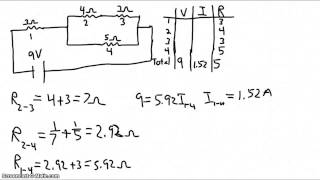 4Ω 3Ω
2 3
3Ω
1
5Ω
4
9V
V I R
1 3
2 4
3 3
4 5
Total 9 1.52 5
R2-3 = 4+3=7Ω
9=5.92 I1-4 I1-4=1.52A
R2-4 = 1/7 + 1/5 = 2.92Ω
R1-4 = 2.92+3=5.92Ω
Screencast-O-Matic.com